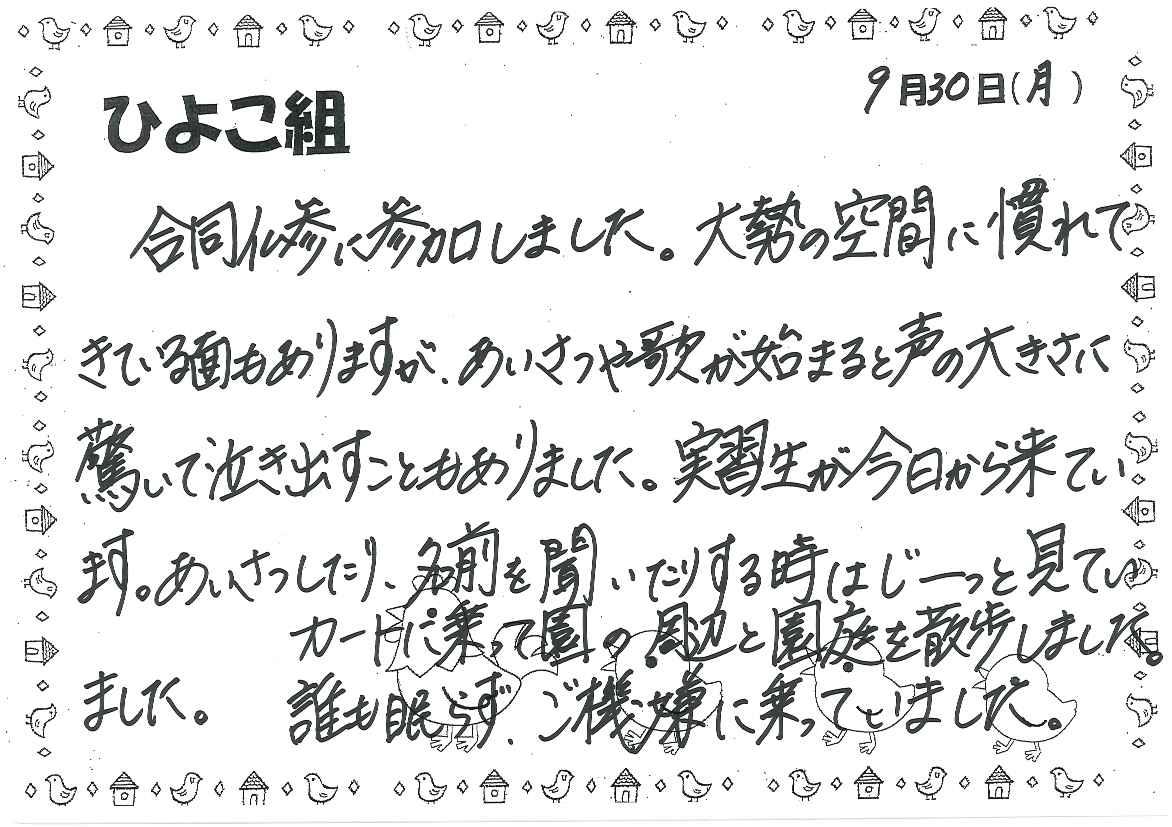 9月30日(月)
ひよこ組
合同仏参に参加しました。大勢の空間に慣れて
きている面もありますが、あいさつや歌が始まると声の大きさに
驚いて泣き出すこともありました。実習生が今日から来てい
ます。あいさつしたり、名前を聞いたりする時はじーっと見てい
ました。
カートに乗って園の周辺と園庭を散歩しました。
誰も眠らず、ご機嫌に乗っていました。